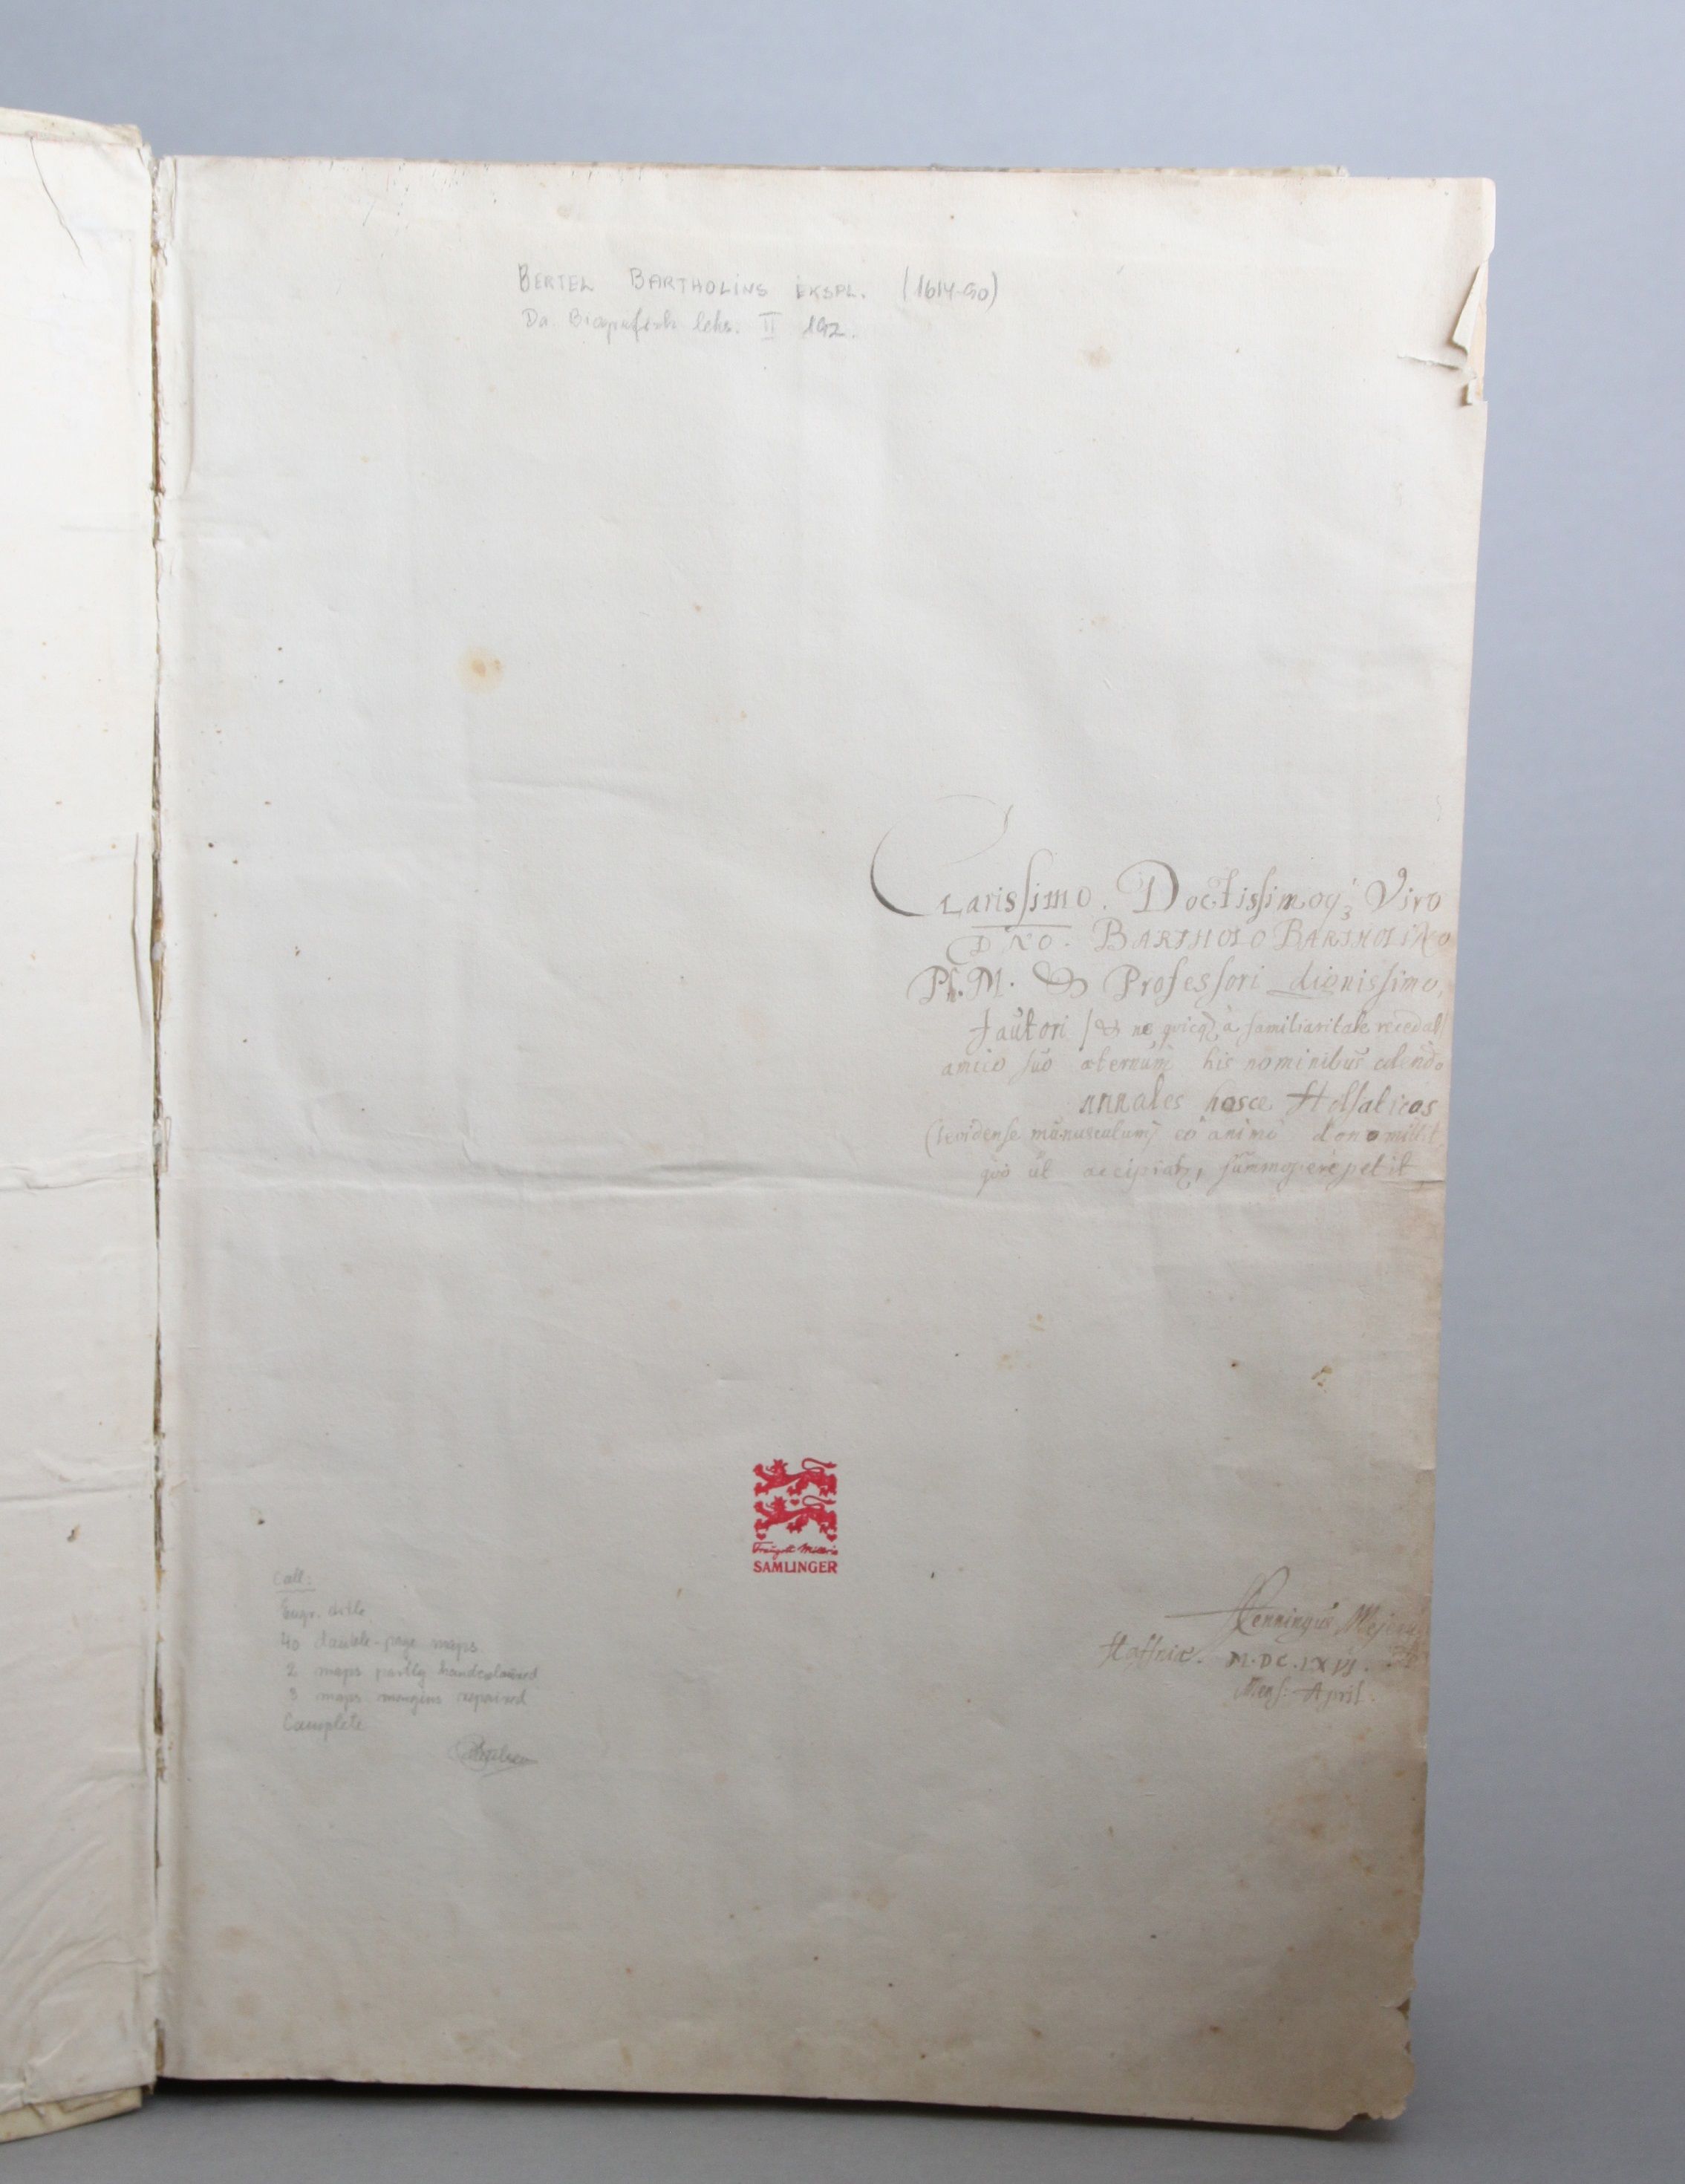 BERTEL BARTHOLINS EKSPL. (1614-90)
Da. Biografisk leks. II 192.
Clarissimo. Doctissimoq; Viro
DNO. BARTHOLO BARTHOLINO
P. M. & Professori dignissimo,
fautori (& ne quicq; à familiaritate recedat)
amico suo æternum his nominibus colendo
annales hosce Holsaticos
(levidense munusculum) eo animo dono mittit,
quo ut accipiatur, summopere petit
Henningus Mejerus
Haffniæ. M.DC.LXVI.
Mens. April.
SAMLINGER
Coll:
Engr. title
40 double-page maps
2 maps partly handcoloured
3 maps margins repaired
Complete